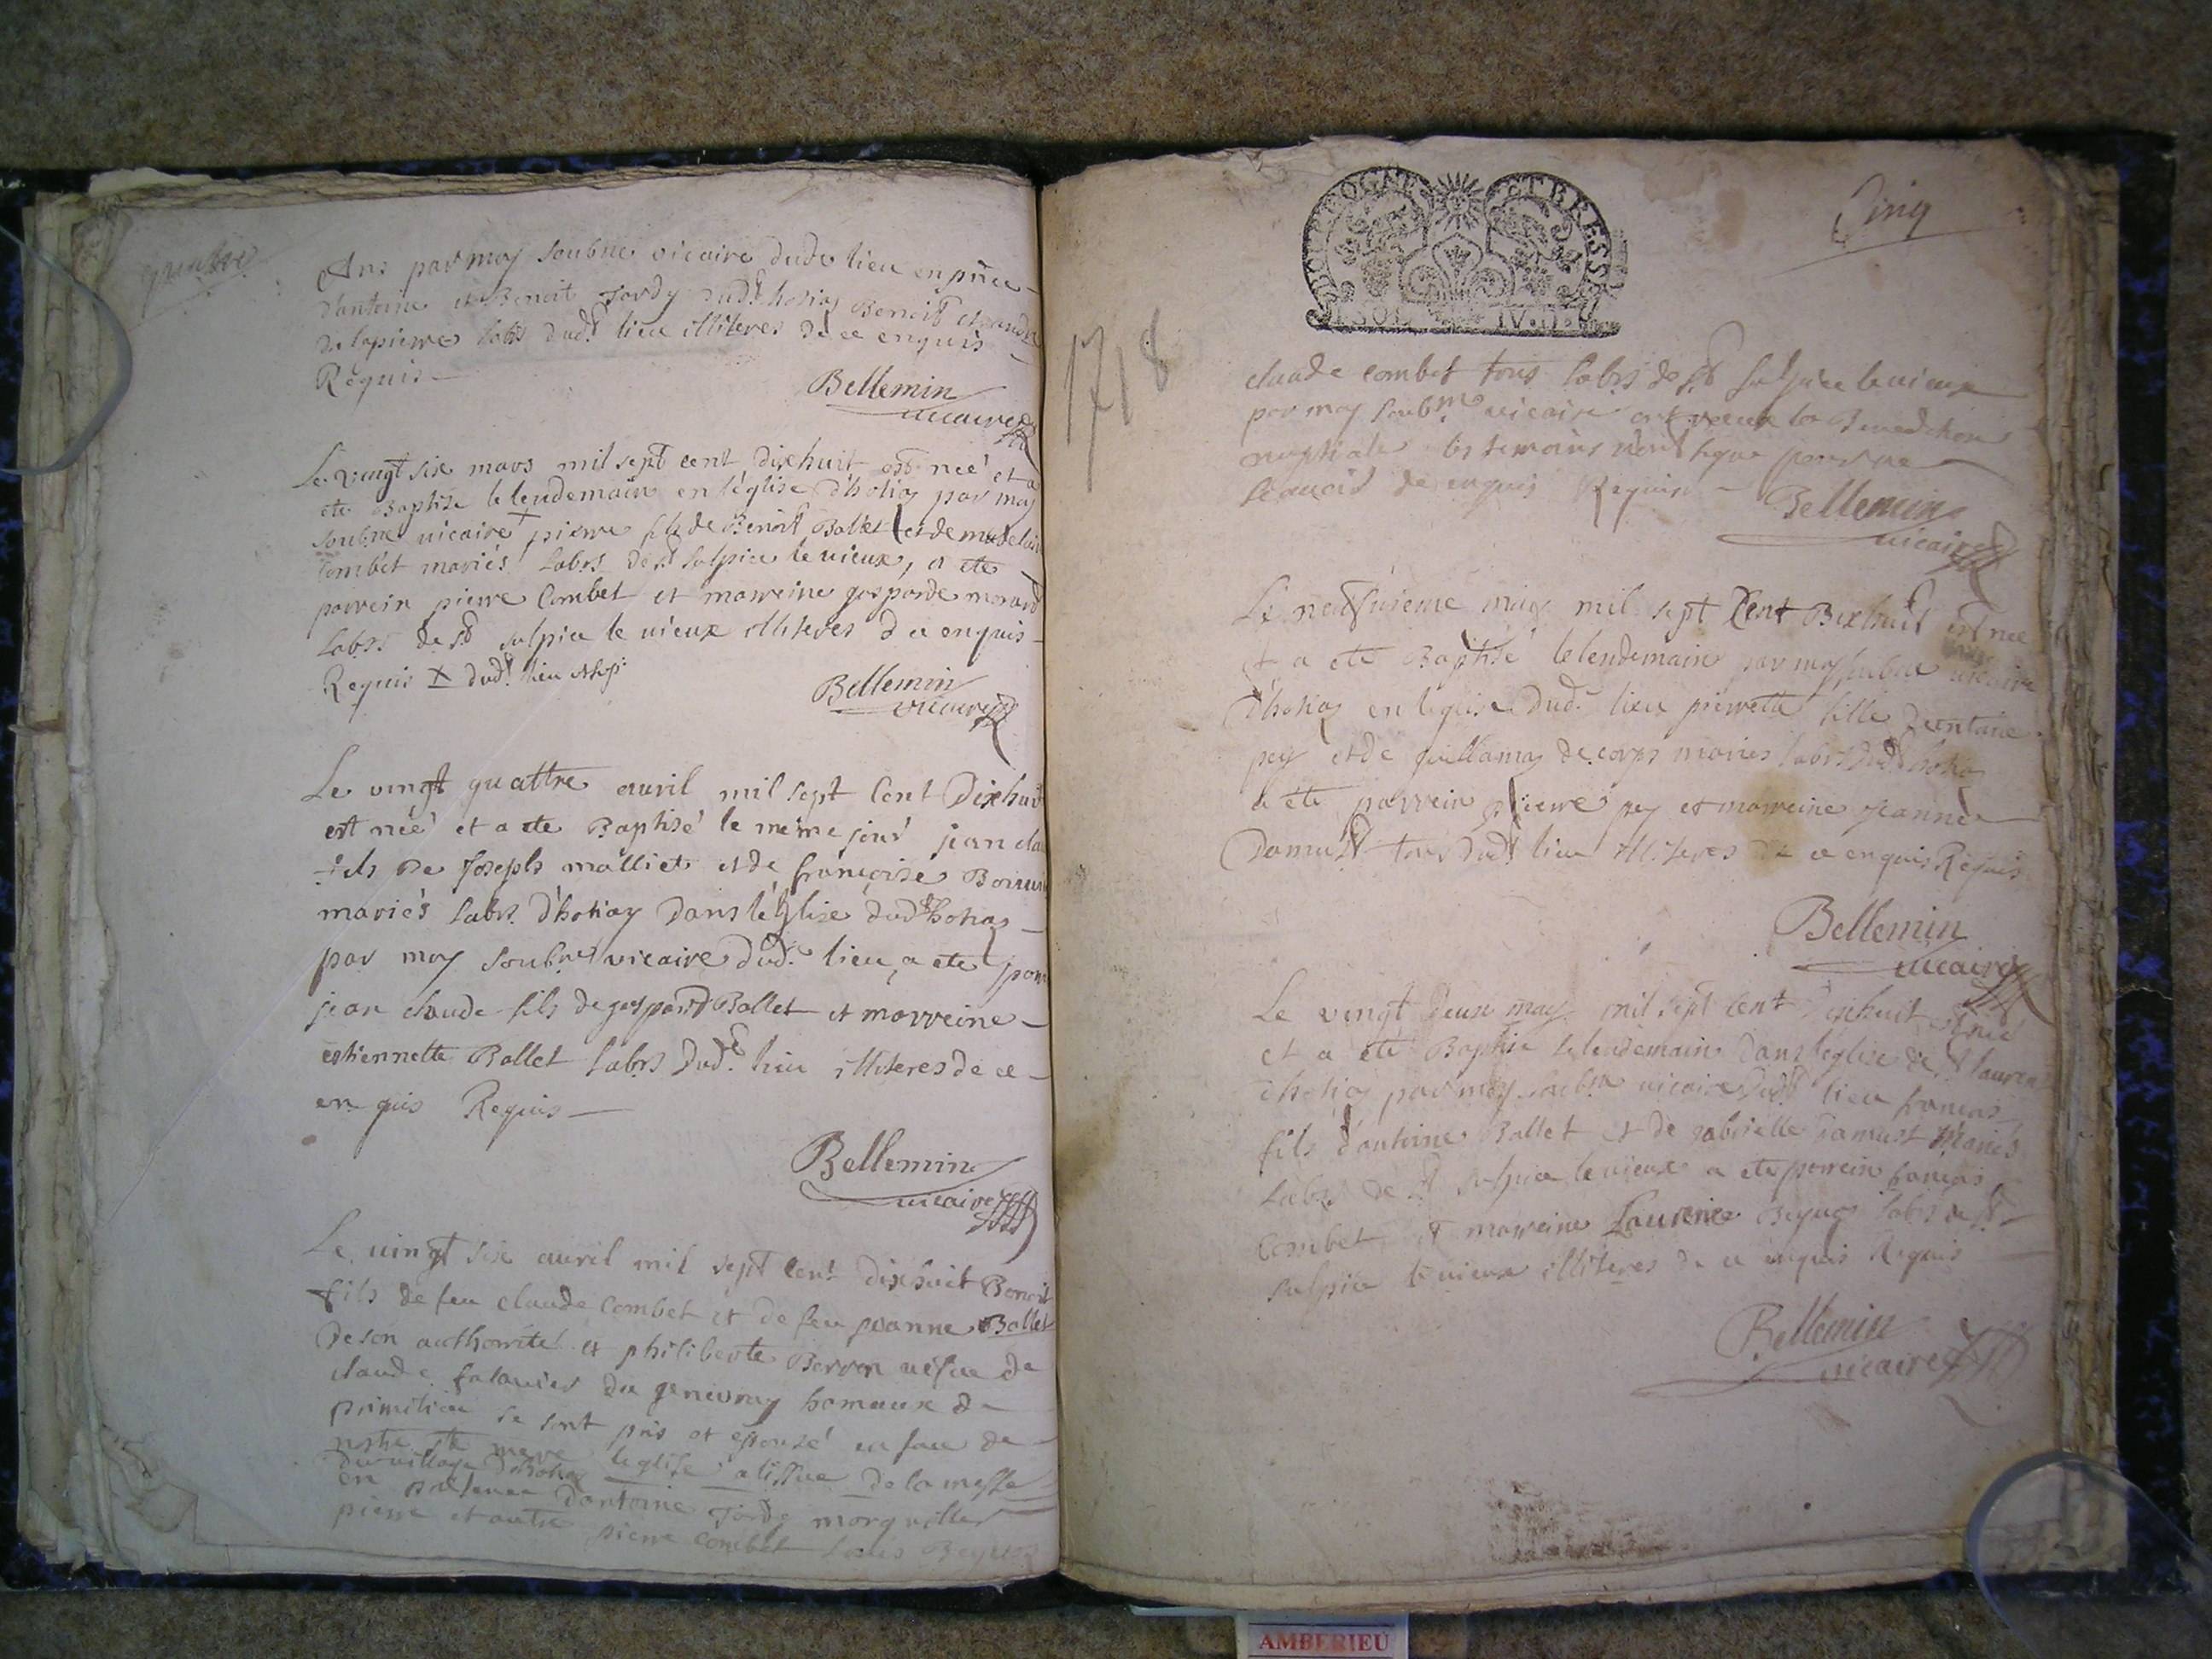 quattre
Ans par moy soubne vicaire dudt lieu en pñce
d'antoine et Benoit Jordy dudt hotiaz Benoit et
de lapierre labrs dudt lieu illiteres de ce enquis
Requis
Bellemin
vicaire
Le vingt six mars mil sept cent dixhuit est neé et a
ete Baptise le lendemain en l'eglise d'hotiaz par moy
soubne vicaire + pierre fils de Benoit Ballet et de madelaine
Combet mariés labrs de st sulpice le vieux, a ete
parrein pierre Combet et marreine gasparde morard
labrs de st sulpice le vieux illiteres d ce enquis
Requis + dudt lieu
Bellemin
vicaire
Le vingt quattre avril mil sept Cent Dixhuit
est neé et a ete Baptisé le même jour jean cla
fils De Joseph malliet et de françoise
mariés labrs. d'hotiaz Dans léglise dudt hotiaz
par moy soubne vicaire dud. lieu, a ete parr
jean claude fils de gaspard Ballet et marreine
estiennette Ballet labrs dudt. lieu illiteres de ce
enquis Requis
Bellemin
vicaire
Le vingt six avril mil sept Cent dixhuit Benoit
fils de feu claude Combet et de feu jeanne Ballet
de son authorité et philiberte Berron vefue de
claude du genevray hameaux de
se sont pris et epousé en face de
notre ste mere leglise a lissue de la messe
du village d'hotiaz
en presence d'antoine Jordy morguillier
pierre et autre pierre combet Louis
Cinq
BOURGOGNE ET BRESSE
SOL IV.D
1718
claude combet tous labrs de st sulpice le vieux
par moy soubne vicaire ont receu la Benediction
nuptiale les temoins n'ont signe pour ne
scauoir de enquis Requis
Bellemin
vicaire
Le neufuieme may mil sept Cent Dixhuit est nee
et a eté Baptisé le lendemain par moy soubne vicaire
d'hotiaz en leglise dud. lieu pierrette fille d'antoine
pey et de guillamaz decorps mariés labrs dudt hotiaz
a été parrein pierre pey et marreine jeanne
Damust tous dudt lieu illiteres de ce enquis Requis
Bellemin
vicaire
Le vingt deux may mil sept cent dixhuit est né
et a été Baptise le lendemain dans leglise de st lauren
d'hotiaz par moy soubne vicaire dudt lieu francois
fils d'antoine Ballet et de gabrielle damust Mariés
Labrs de st sulpice le vieux a ete parrein francois
Combet et marreine Laurence labrs de st
sulpice le vieux illiteres de ce enquis Requis
Bellemin
vicaire
AMBERIEU